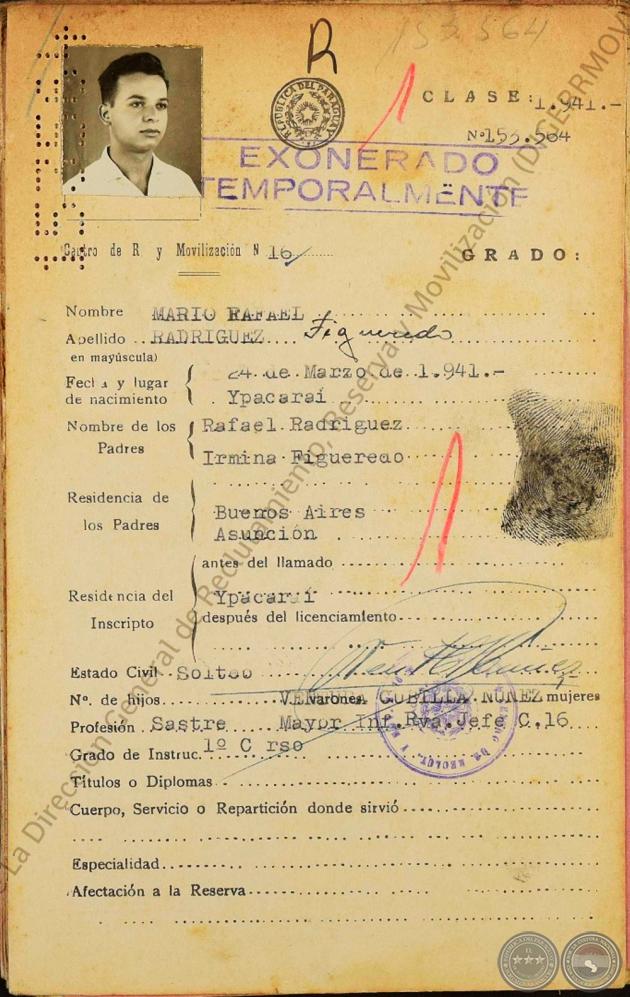 R
153.564
REPUBLICA DEL PARAGUAY
CLASE: 1.941.-
Nº 153.564
EXONERADO
TEMPORALMENTE
Centro de R y Movilización N 16
GRADO:
Nombre MARIO RAFAEL
Apellido RADRIGUEZ Figueredo
en mayúscula)
Fecha y lugar 24 de Marzo de 1.941.-
de nacimiento Ypacaraí
Nombre de los Rafael Radriguez
Padres Irmina Figueredo
Residencia de Buenos Aires
los Padres Asunción
antes del llamado
Residencia del Ypacaraí
Inscripto después del licenciamiento
Estado Civil Solteo
Nº. de hijos Varones mujeres
VENTURA CUBILLA NUÑEZ
Profesión Sastre Mayor Inf.Rva.Jefe C.16
Grado de Instruc. 1º C rso
Títulos o Diplomas
Cuerpo, Servicio o Repartición donde sirvió
Especialidad
Afectación a la Reserva
La Dirección General de Reclutamiento, Reserva y Movilización (DISERRMOV